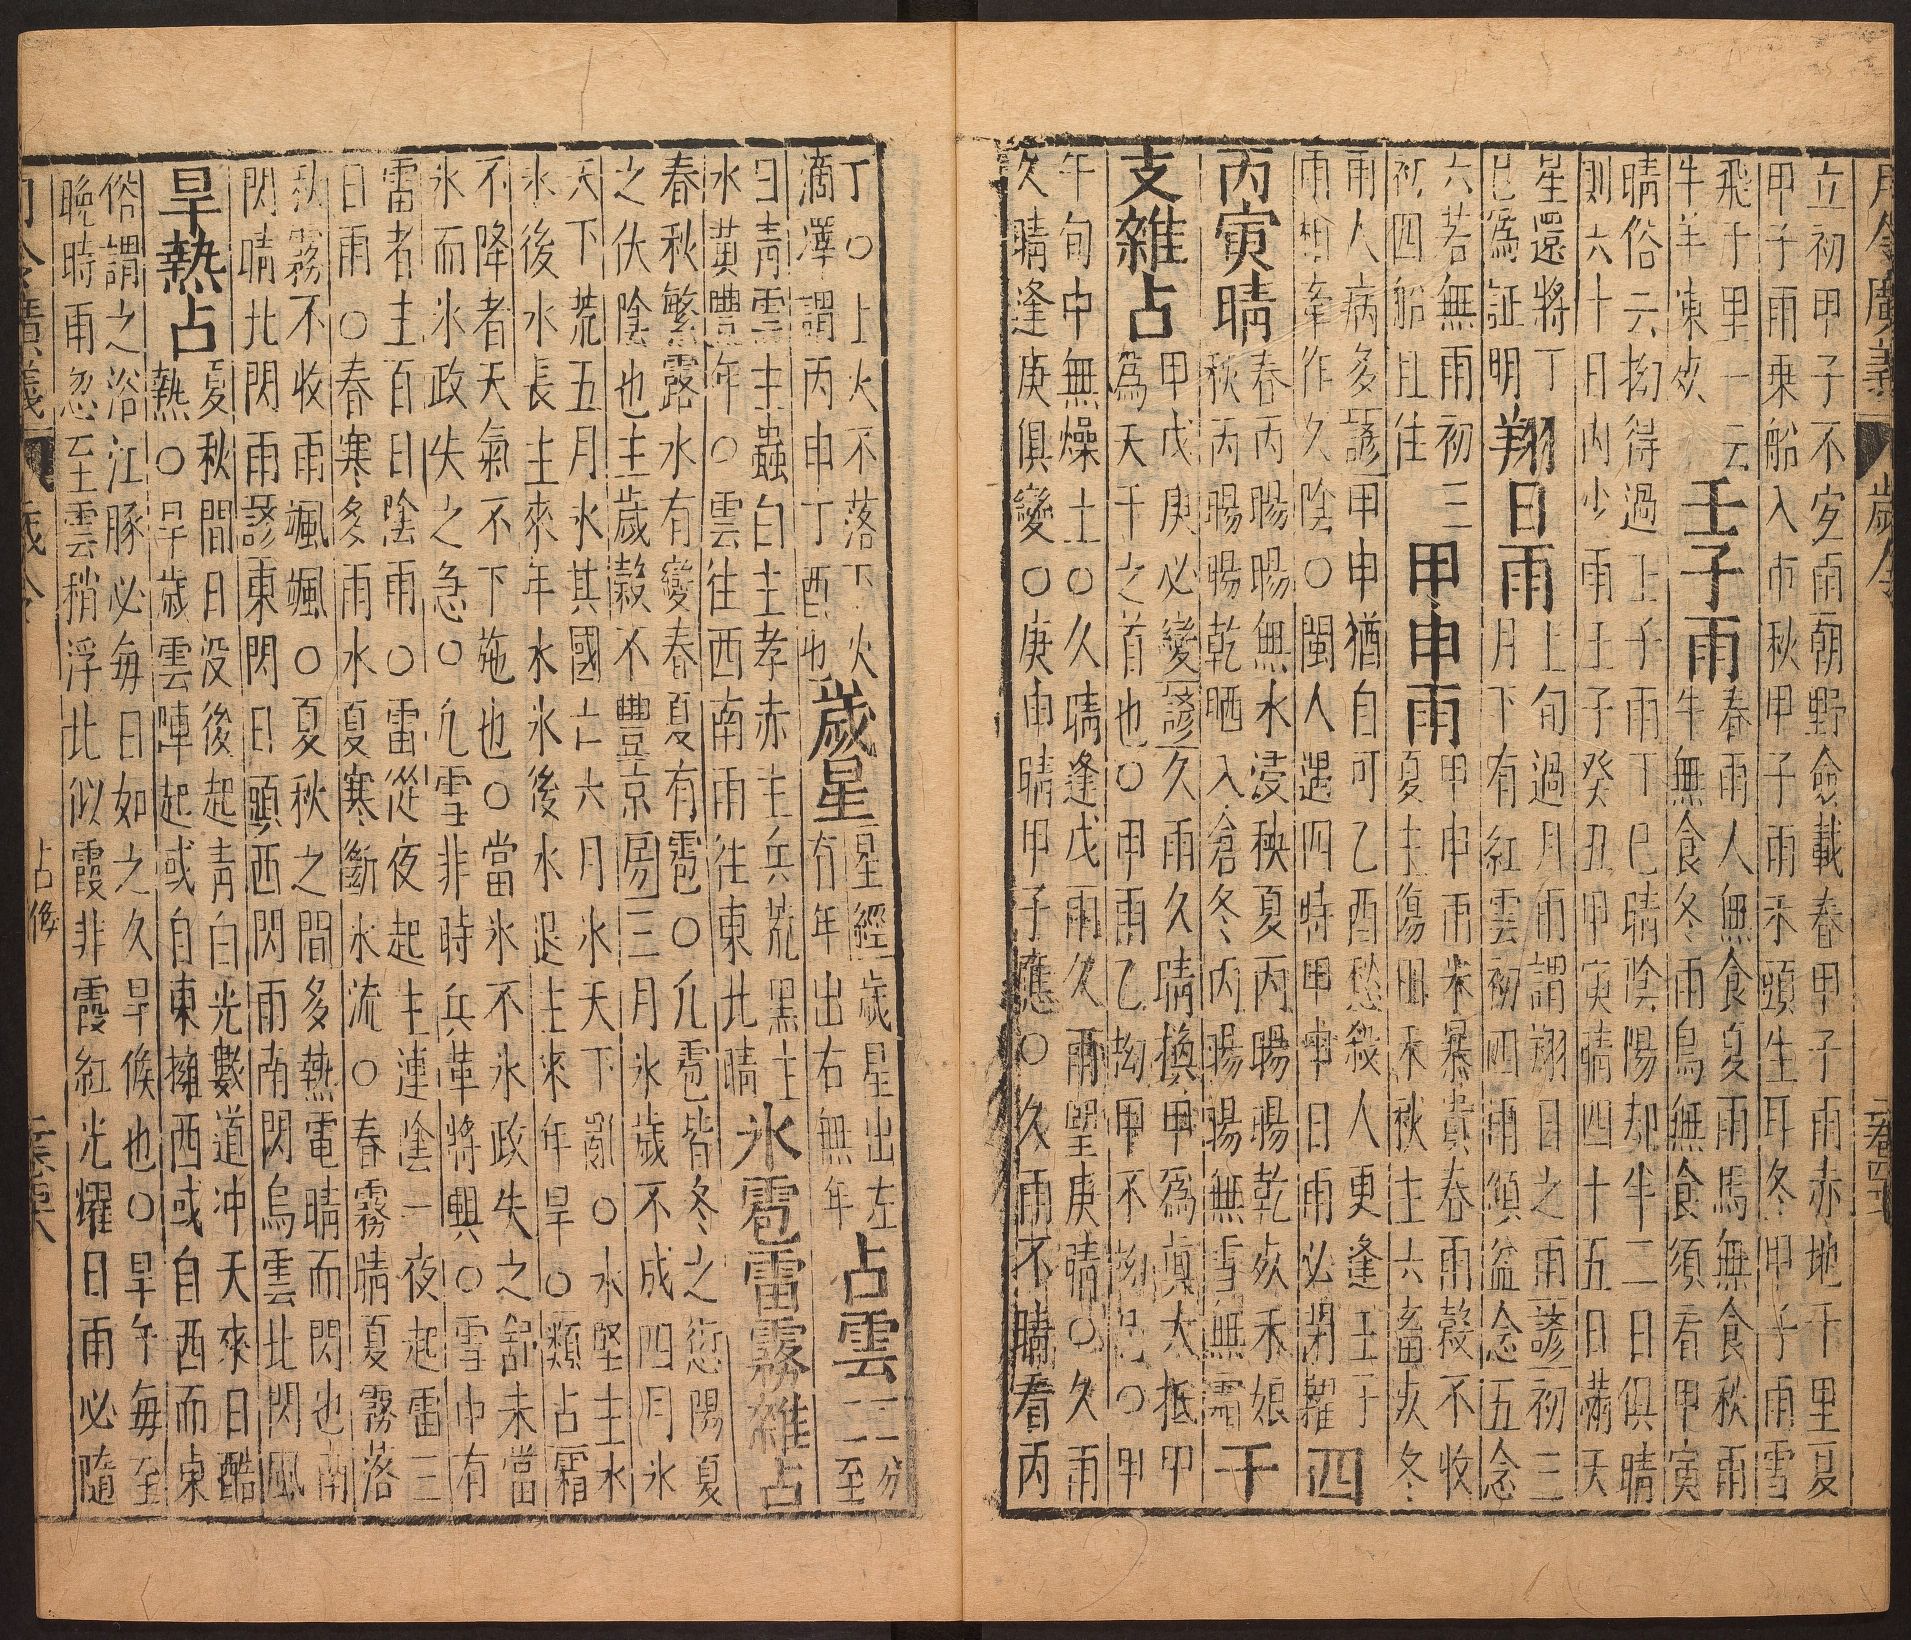 月令廣義 歲令
立初甲子不安雨朝野僉載春甲子雨赤地千里夏
甲子雨乘船入市秋甲子雨禾頭生耳冬甲子雨雪
飛千里一云
牛羊凍死
壬子雨
春雨人無食夏雨馬無食秋雨
牛無食冬雨鳥無食須看甲寅
晴俗云拗得過壬子雨丁巳晴陰陽却半二日俱晴
則六十日內少雨壬子癸丑甲寅晴四十五日滿天
星還將丁
巳為証明
翔日雨
上旬過月雨謂翊日之雨諺初三
月下有紅雲初四雨傾盆念五念
六若無雨初三
初四船且往
甲申雨
甲申雨米暴貴春雨榖不收
夏主傷田禾秋主六畜死冬
雨人病多諺甲申猶自可乙酉愁殺人更逢壬子
雨相牽作久陰○閩人遇四時甲申日雨必閉糴
四
丙寅晴
春丙暘暘無水浸秧夏丙暘暘乾死禾娘
秋丙暘暘乾晒入倉冬丙暘暘無雪無霜
干
支雜占
甲戊庚必變諺久雨久晴換甲為真大抵甲
為天干之首也○甲雨乙拗甲不拗乙○甲
午旬中無燥土○久晴逢戊雨久雨望庚晴○久雨
久晴逢庚俱變○庚申晴甲子應○久雨不晴看丙
丁○上火不落下火
滴澤謂丙申丁酉也
歲星
星經歲星出左
有年出右無年
占雲
二分
二至
曰青雲主蟲白主孝赤主兵荒黑主
水黃豐年○雲往西南雨往東北晴
氷雹雷霧雜占
春秋繁露水有變春夏有雹○凡雹皆冬之愆陽夏
之伏陰也主歲榖不豐京房三月氷歲不成四月氷
天下荒五月氷其國亡六月氷天下亂○氷堅主水
氷後水長主來年水氷後水退主來年旱○類占霜
不降者天氣不下施也○當氷不氷政失之舒未當
氷而氷政失之急○凡雪非時兵革將興○雪中有
雷者主百日陰雨○雷從夜起主連陰一夜起雷三
日雨○春寒多雨水夏寒斷水流○春霧晴夏霧落
秋霧不收雨颯颯○夏秋之間多熱電晴而閃也南
閃晴北閃雨諺東閃日頭西閃雨南閃烏雲北閃風
旱熱占
夏秋間日沒後起青白光數道冲天來日酷
熱○旱歲雲陣起或自東擁西或自西而東
俗謂之浴江豚必每日如之久旱候也○旱午每至
晚時雨忽至雲稍浮北似霞非霞紅光耀日雨必隨
月令廣義 歲令 占候